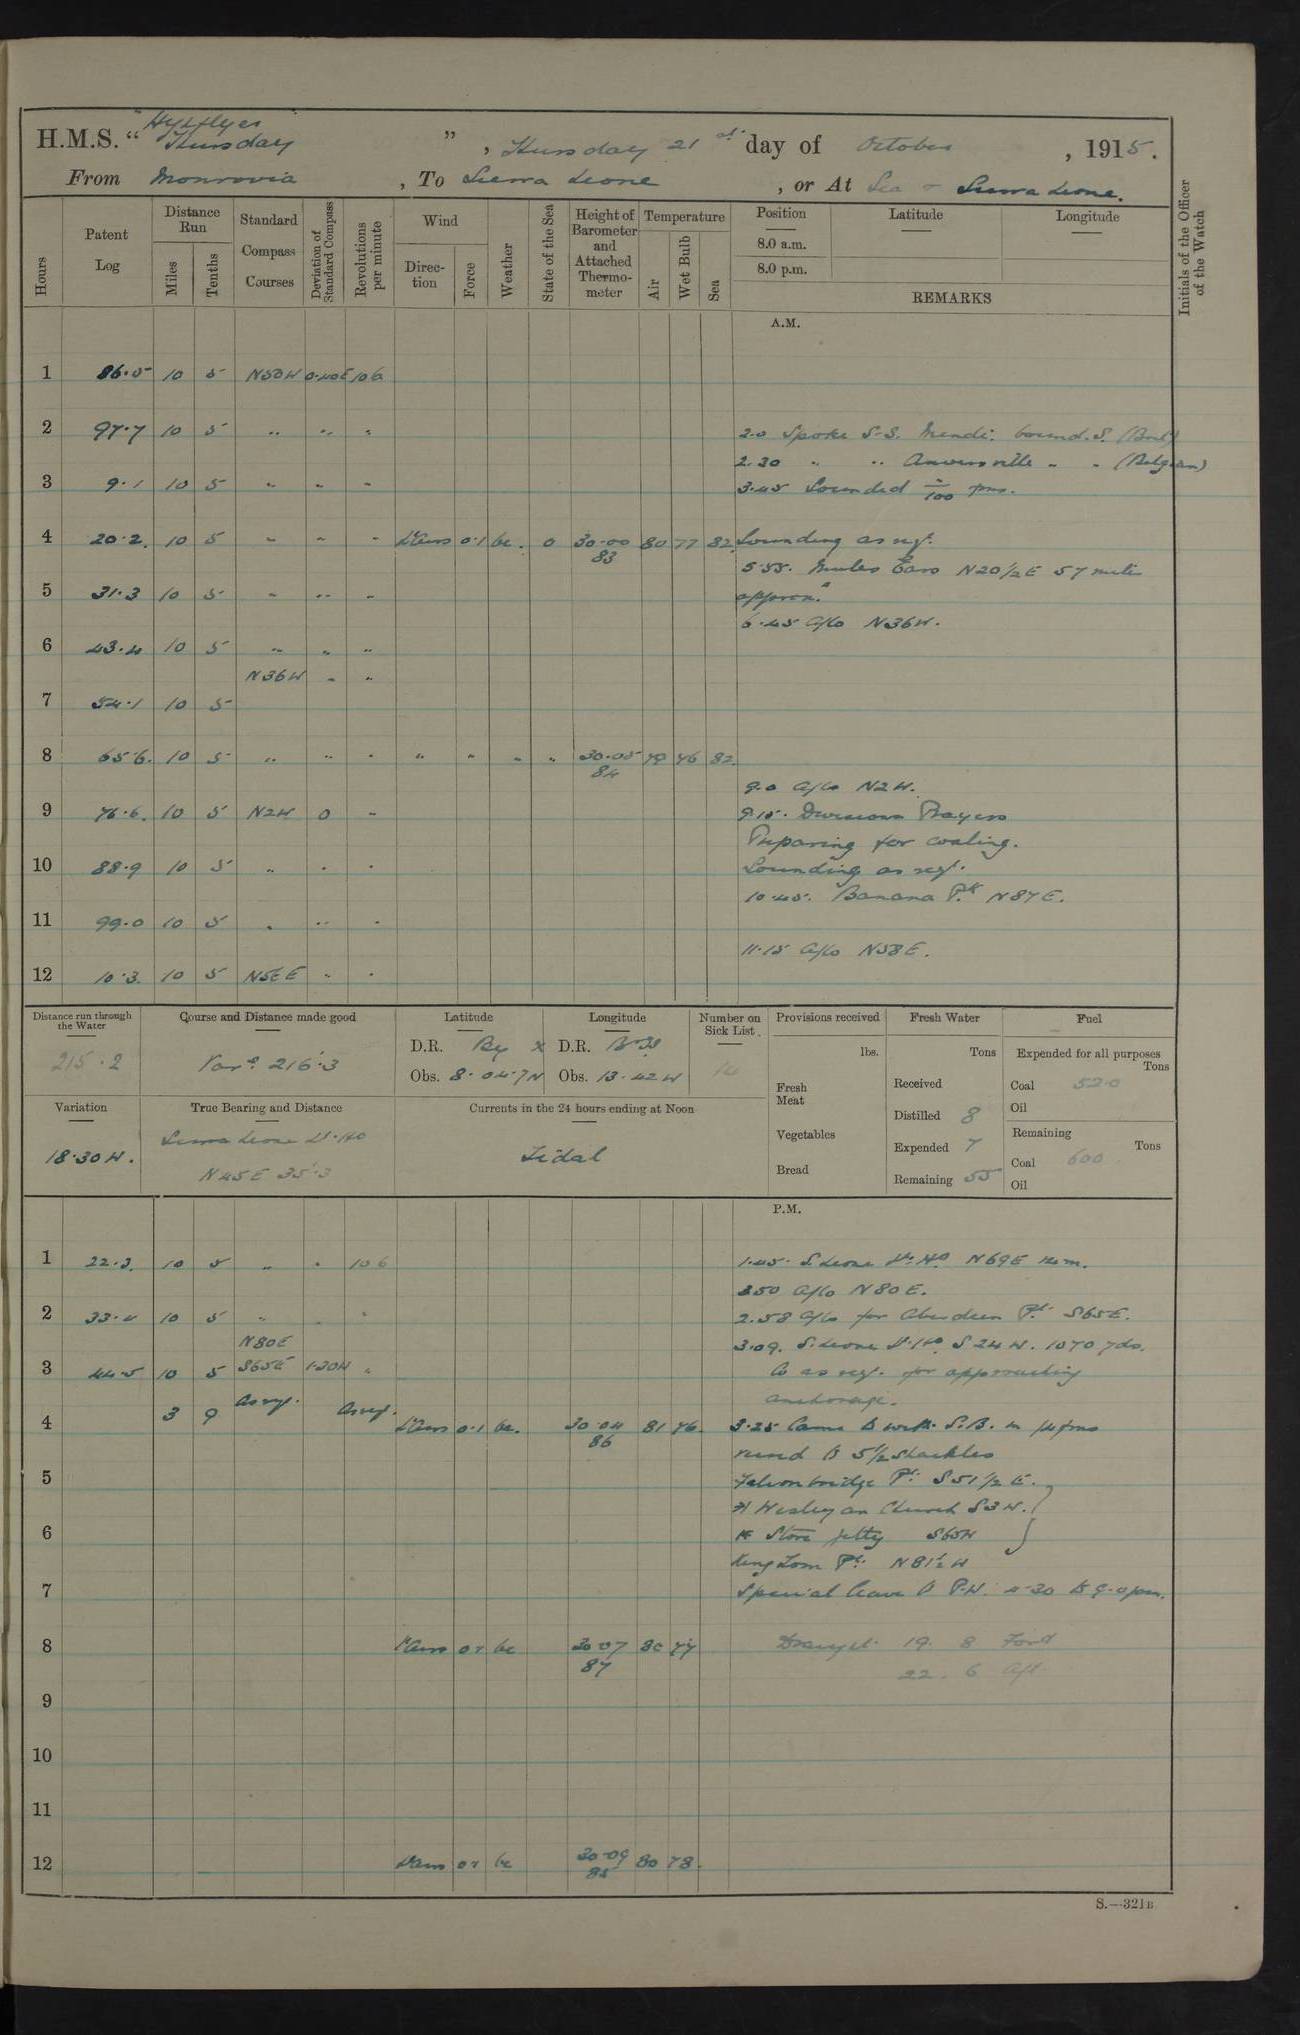 H.M.S. " Highflyer
Thursday ", Thursday 21st day of October, 1915.
From Monrovia, To Sierra Leone, or At Sea & Sierra Leone.
Hours Patent Log Distance Run Miles Tenths Standard Compass Courses Deviation of Standard Compass Revolutions per minute Wind Direction Force Weather State of the Sea Height of Barometer and Attached Thermometer Temperature Air Wet Bulb Sea Position 8.0 a.m. 8.0 p.m. Latitude Longitude REMARKS Initials of the Officer of the Watch
A.M.
1 86.5 10 5 N50W 0.40E 106
2 97.7 10 5 " " "
2.0 Spoke S.S. Mendi. bound. S. (Brit)
2.30 " " Anversville " " (Belgian)
3 9.1 10 5 " " "
3.45 Sounded 100 fms.
4 20.2 10 5 " " " Lt Airs 0.1 bc. 0 30.00 83 80 77 82 Sounding as req.
5.55. Mules Ears N20½E 57 miles
approx.
5 31.3 10 5 " " "
6.45 A/Co N36W.
6 43.4 10 5 " " "
N36W " "
7 54.1 10 5
8 65.6. 10 5 " " " " " " " 30.05 84 79 76 82.
9.0 A/Co N2W.
9 76.6. 10 5 N2W 0 "
9.15. Divisions Prayers
Preparing for coaling.
10 88.9 10 5 " " "
Sounding as req.
10.45. Banana Pk N87E.
11 99.0 10 5 " " "
11.15 A/Co N58E.
12 10.3. 10 5 " "
Distance run through the Water 215.2
Course and Distance made good 216.3
Latitude D.R. By Obs. 8.04.7N
Longitude D.R. Obs. 13.42W
Number on Sick List 14
Provisions received lbs. Fresh Meat Vegetables Bread
Fresh Water Tons Received Distilled 8 Expended 7 Remaining 55
Fuel Expended for all purposes Tons Coal 52.0 Oil Remaining Tons Coal 600 Oil
Variation 18.30W.
True Bearing and Distance Sierra Leone Lt. Ho N45E 35.3
Currents in the 24 hours ending at Noon Tidal
P.M.
1 22.3. 10 5 " " 106 1.45. S. Leone Lt. Ho. N69E 12 m.
2.50 A/Co N80E.
2 33.4 10 5 " " 2.58 A/Co for Aberdeen Pt. S65E.
N80E
3.09. S. Leone Lt. Ho. S24W. 1070 yds.
3 44.5 10 5 S65E 1.30W " Co as req. for approaching
anchorage.
3 9 As req. As req.
4 Lt Airs 0.1 bc. 30.04 86 81 76. 3.25 Came to with S.B. in 14 fms
veered to 5½ shackles
5 Falconbridge Pt. S51½E.
Wesleyan Church S3W.
6 Store jetty S65W
King Tom Pt. N81½W
7 Special leave to P.W. 4.30 to 9.0 pm.
8 Lt Airs 0.1 bc 30.07 87 80 77 Draught 19. 8 Ford
22. 6 Aft
9
10
11
12 Lt Airs 0.1 bc 30.09 85 80 78.
S.—321B